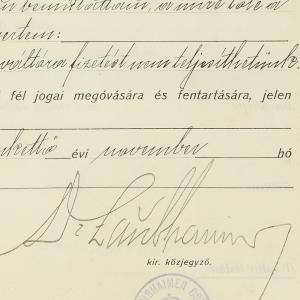 n bemutattam, a mire tőle a
ertem:
váltóra fizetést nem teljesíthetünk.
fél jogai megóvására és fentartására, jelen
nkettő évi november hó
Dr Laubhaimer
kir. közjegyző.
UBHAIMER DE